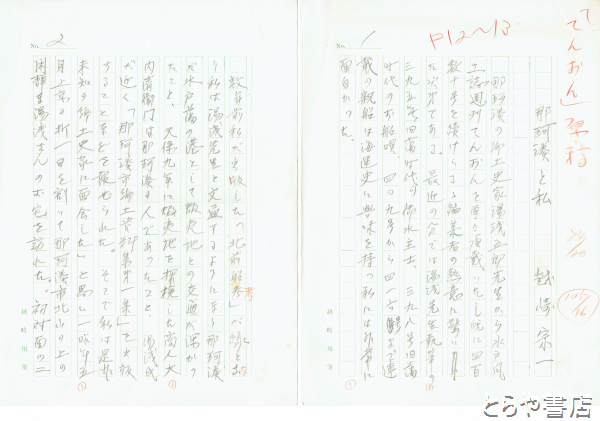 「てんおん」原稿
P12〜13
No. 1
那珂湊と私
越崎宗一
那珂湊の郷土史家湯浅五郎先生から水戸風
土誌週刊てんおんを
数十号を続けらるる編集者の熱意に驚い
た次第である。最近の分では湯浅先生執筆の
三九五号旧藩時代の保水主、三九八号旧藩
時代のお船唄、四〇九号から四一六号まで連
載の観船は海運史に興味を持つ私には非常に
面白かった。
No. 2
数年前私が出版した「北前船考」が縁と
り私は湯浅先生と文通するようになり那珂湊
が水戸藩の港として蝦夷地との交通が深かっ
たこと、天保九年に蝦夷地を探検した商人大
内清衛門は那珂湊の人であったこと、湯浅氏
が近く「那珂湊市郷土資料第一集」を出版
することなどを報ぜられた。そこで私は是非
未知の郷土史家に面会したいと思い一昨年五
月上京の折一日を割いて那珂湊市
閑静な湯浅さんのお宅を訪れた。初対面の二
越崎用箋
越崎用箋
とらや書店